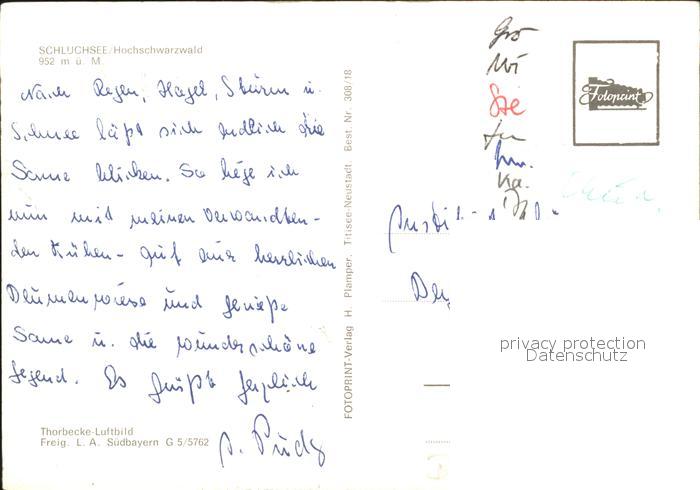 SCHLUCHSEE/Hochschwarzwald
952 m ü. M
Nach Regen, Hagel, Sturm u.
Schnee läßt sich endlich die
Sonne blicken. So liege ich
nun mit meinen Verwandten -
den Kühen - auf einer herrlichen
Blumenwiese und genieße
Sonne u. die wunderschöne
Gegend. Es grüßt herzlich
Thorbecke-Luftbild
Freig. L. A. Südbayern G 5/5762
FOTOPRINT-Verlag H. Plamper, Titisee-Neustadt. Best. Nr. 308/18
Gro
Wi
Ka.
Fotoprint
privacy protection
Datenschutz